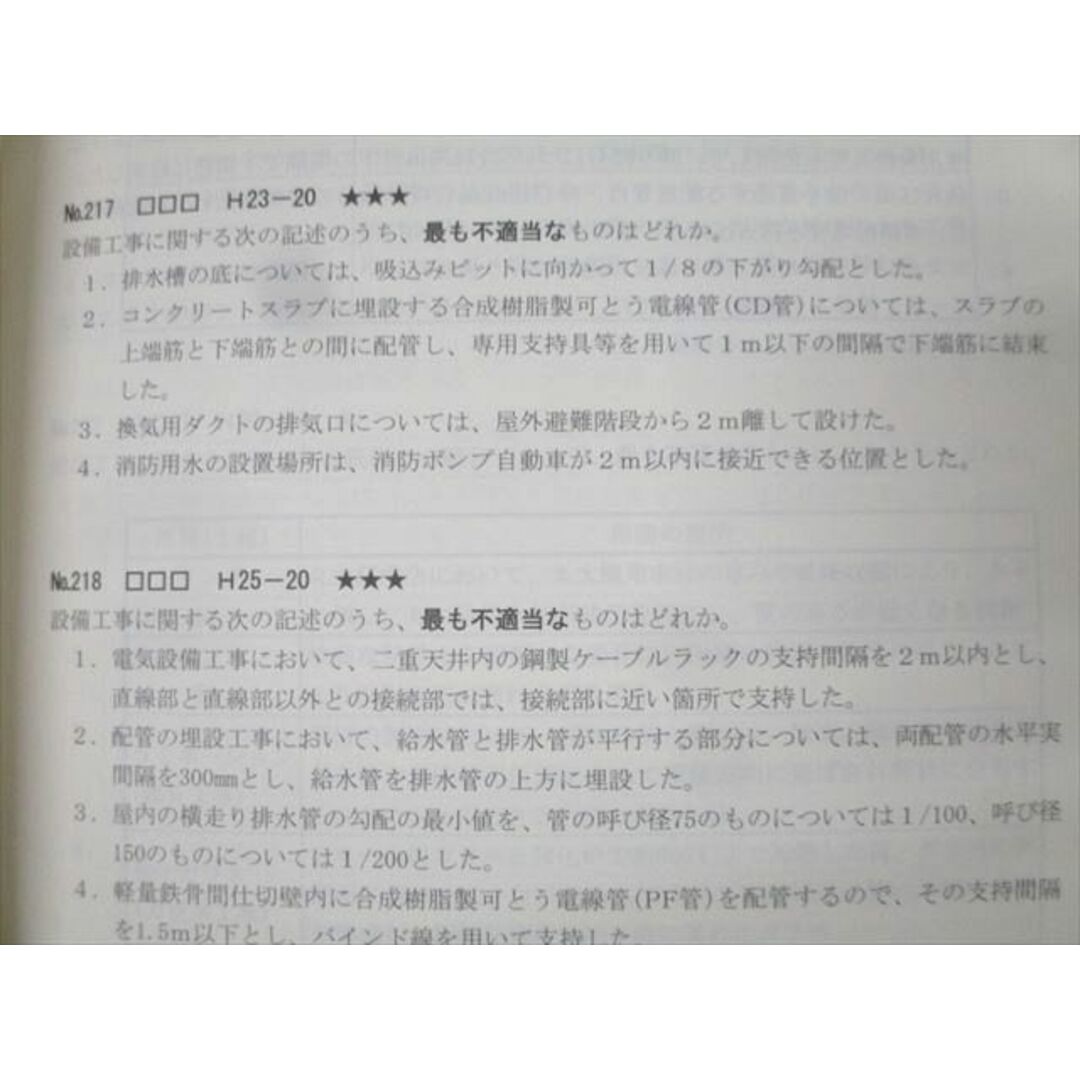 №217 □□□ H23－20 ★★★
設備工事に関する次の記述のうち、最も不適当なものはどれか。
1．排水槽の底については、吸込みピットに向かって１/８の下がり勾配とした。
2．コンクリートスラブに埋設する合成樹脂製可とう電線管(CD管)については、スラブの
上端筋と下端筋との間に配管し、専用支持具等を用いて１ｍ以下の間隔で下端筋に結束
した。
3．換気用ダクトの排気口については、屋外避難階段から２ｍ離して設けた。
4．消防用水の設置場所は、消防ポンプ自動車が２ｍ以内に接近できる位置とした。
№218 □□□ H25－20 ★★★
設備工事に関する次の記述のうち、最も不適当なものはどれか。
1．電気設備工事において、二重天井内の鋼製ケーブルラックの支持間隔を２ｍ以内とし、
直線部と直線部以外との接続部では、接続部に近い箇所で支持した。
2．配管の埋設工事において、給水管と排水管が平行する部分については、両配管の水平実
間隔を300㎜とし、給水管を排水管の上方に埋設した。
3．屋内の横走り排水管の勾配の最小値を、管の呼び径75のものについては１/100、呼び径
150のものについては１/200とした。
4．軽量鉄骨間仕切壁内に合成樹脂製可とう電線管(PF管)を配管するので、その支持間隔
を1.5m以下とし、バインド線を用いて支持した。